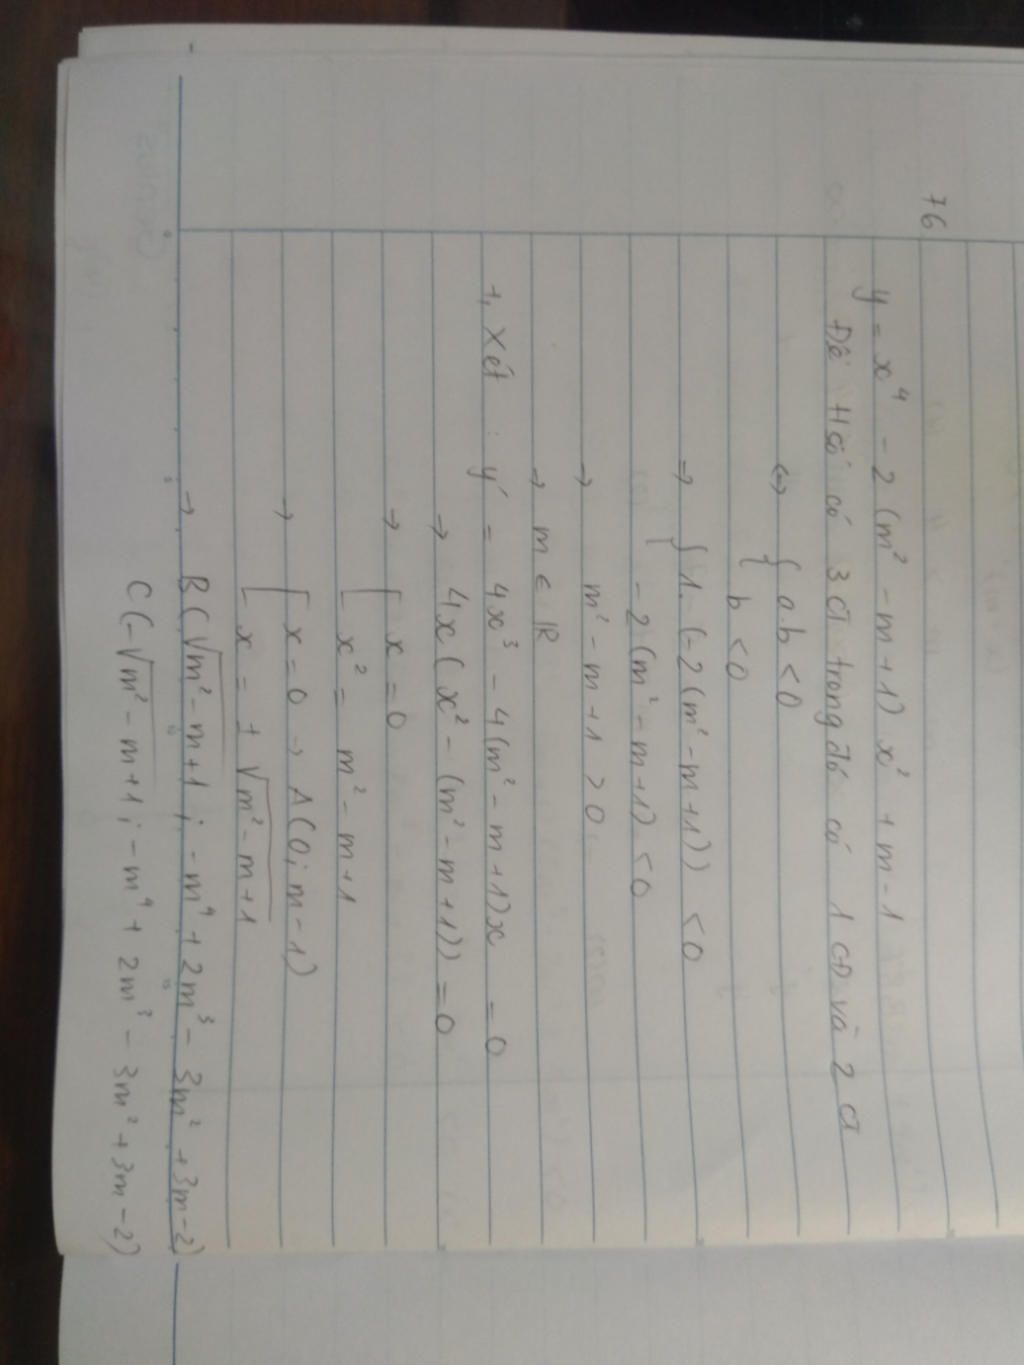 76
y = x⁴ - 2 (m² - m + 1) x² + m - 1
Để Hàm số có 3 CT trong đó có 1 CĐ và 2 CT
⇔ { a.b < 0
b < 0
⇒ { 1. (-2 (m² - m + 1)) < 0
- 2 (m² - m + 1) < 0
→ m² - m + 1 > 0
→ m ∈ R
+, Xét : y' = 4x³ - 4 (m² - m + 1) x = 0
→ 4x ( x² - (m² - m + 1)) = 0
→ [ x = 0
x² = m² - m + 1
→ [ x = 0 → A (0 ; m - 1)
x = + √m² - m + 1
→ B ( √m² - m + 1 ; - m⁴ + 2m³ - 3m² + 3m - 2)
C (- √m² - m + 1 ; - m⁴ + 2m³ - 3m² + 3m - 2)